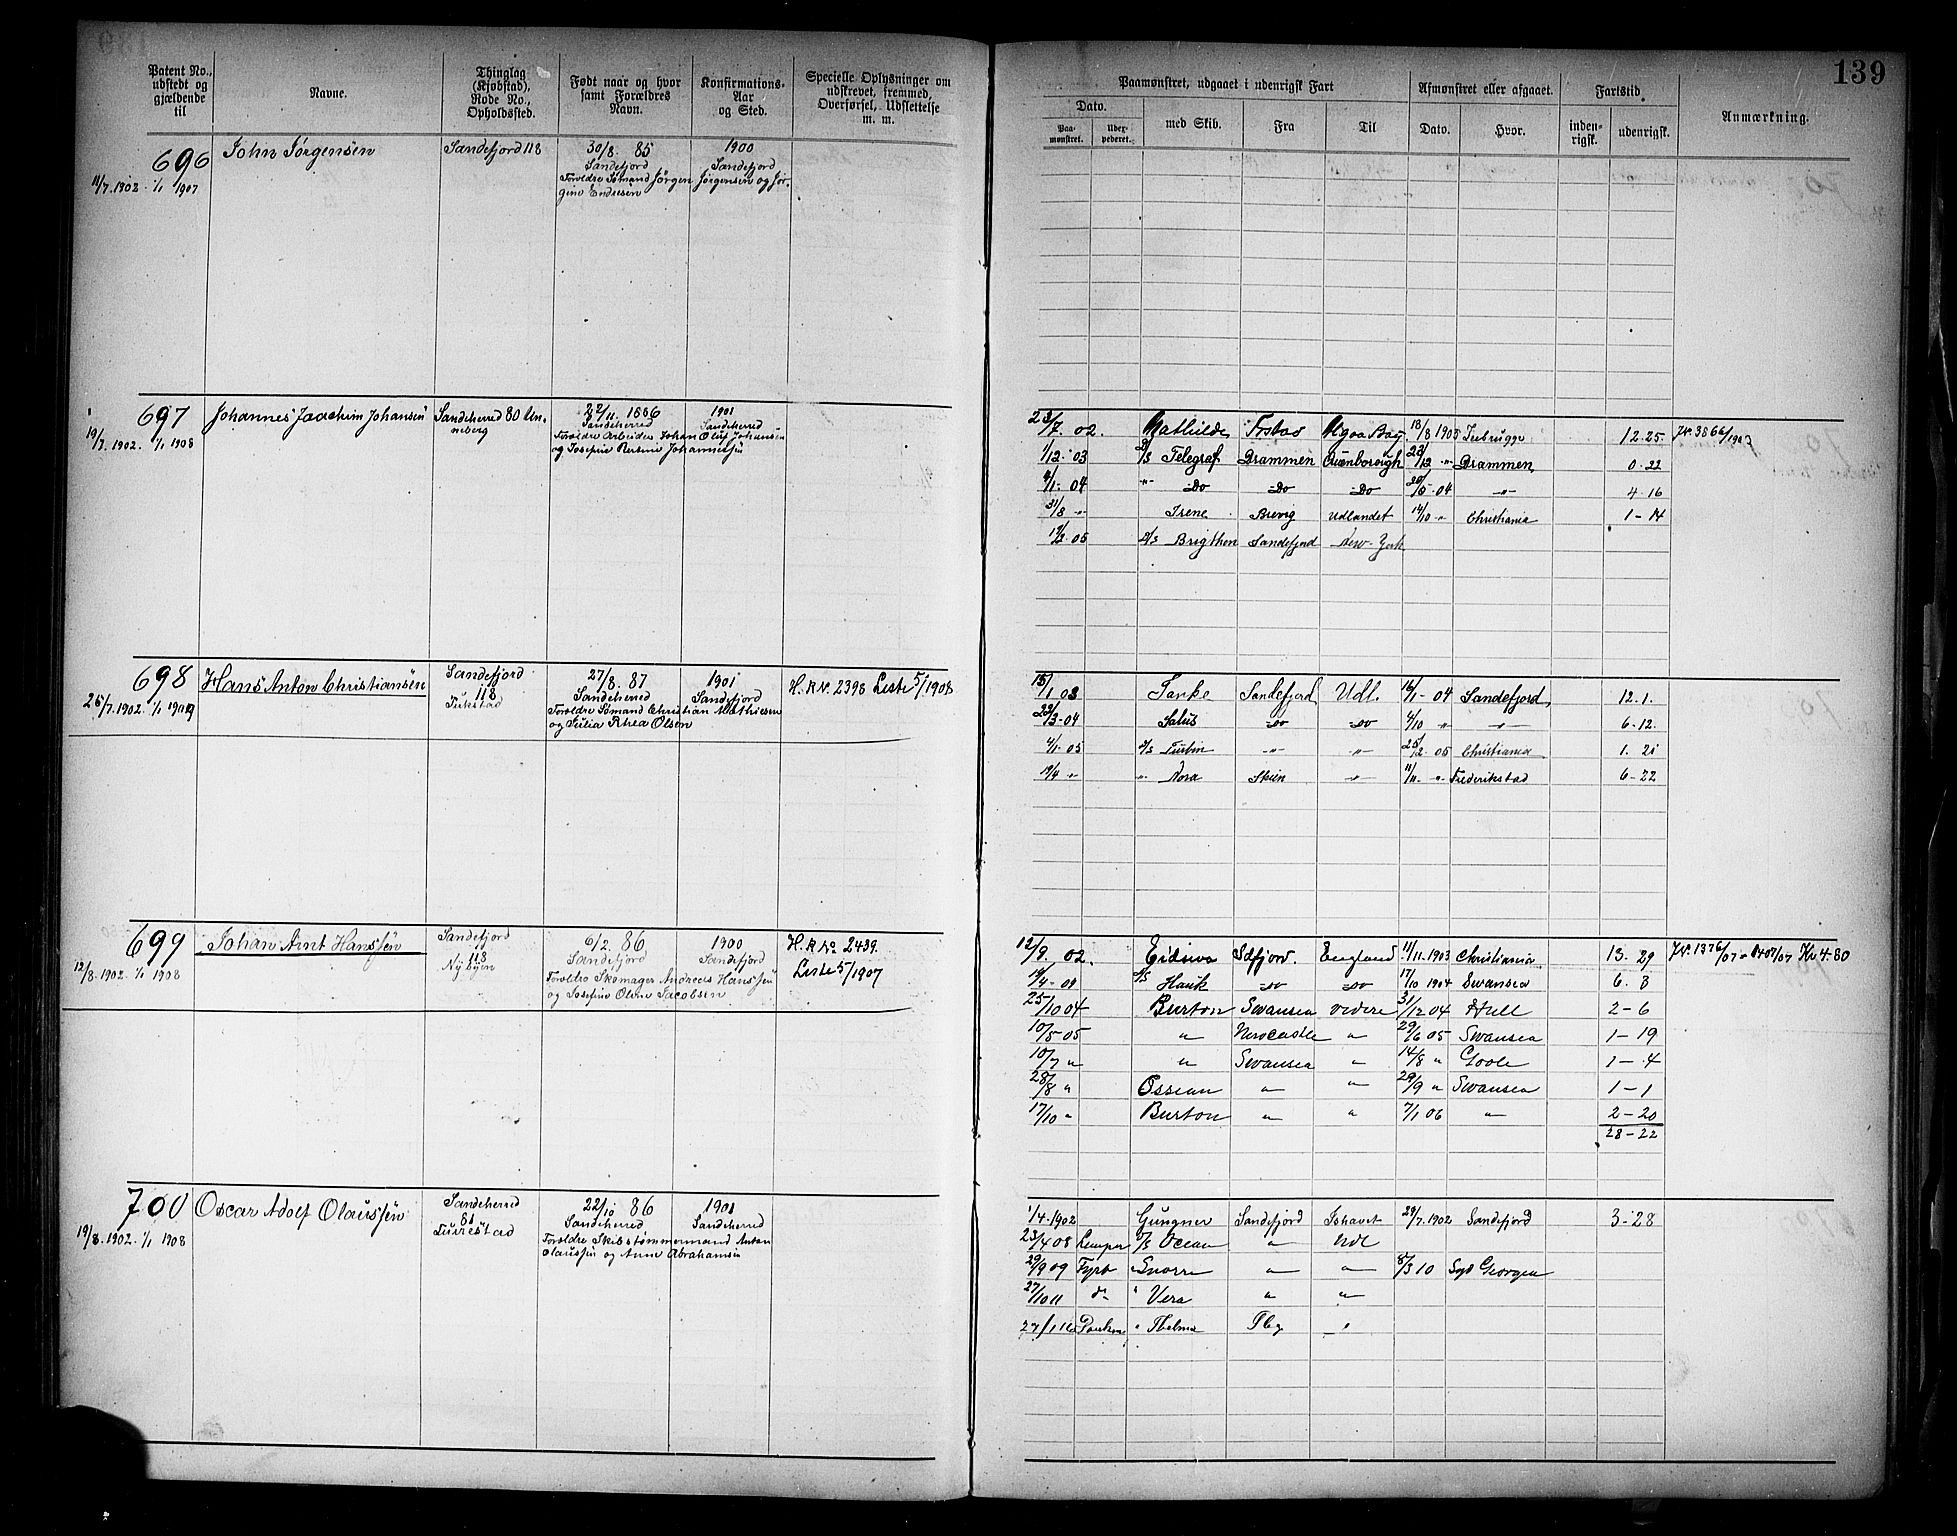 139
Patent No., udstedt og gjældende til
Navne.
Thinglag (Kjøbstad), Rode No., Opholdssted.
Født naar og hvor samt Forældres Navn.
Konfirmations- Aar og Sted.
Specielle Oplysninger om udskrevet, fremmed, Overførsel, Udslettelse m. m.
Paamønstret, udgaaet i udenrigsk Fart
Afmønstret eller afgaaet.
Fartstid.
Anmærkning.
Dato.
Paa- mønstret.
med Skib.
Fra
Til
Dato.
Hvor.
inden- rigsk.
udenrigsk.
696
11/7.1902. 1/1 1907
John Jørgensen
Sandefjord 118
30/8. 85
Sandefjord
1900
Sandefjord
Foreldre Sømand Jørgen Jørgensen og Jør-
gine Endresen
697
19/7.1902. 1/1 1908
Johannes Joachim Johansen
Sandeherred 80 Un-
neberg
22/11. 1886
Sandeherred
1901
Sandeherred
Foreldre Arbeider Johan Oluf Johansen
og Josefine Bertine Johannessen
23/7 02. Mathilde Algoa Bay 18/8 1903 12.25.
1/12.03 D/S Telegraf Drammen 22/12 „ Drammen 0.22
4/1.04 „ Do Do Do 20/5.04 „ 4.16
31/8 „ Irene Brevig Udlandet 14/10 „ Christiania 1-14
D/S Brigthon Sandefjord New-York
Jr. 3866/1903
698
25/7.1902. 1/1 1909
Hans Anton Christiansen
Sandefjord
118
27/8. 87
Sandeherred
1901
Sandefjord
Foreldre Sømand Christian Mathiesen
og Julia Rhea Olsen
H.R Nr. 2398 Liste 5/1908
15/1 03 Sandefjord Udl. 16/1-04 Sandefjord 12.1.
22/3-04 Salus do do 4/10 „ „ 6.12.
4/1.05 D/S „ „ 25/2.05 Christiania 1.21
19/4 „ „ Nora Skien „ 11/11- „ Frederikstad 6-22
699
12/8.1902. 1/1 1908
Johan Arnt Hanssen
Sandefjord
118
Nybyen
6/2. 86
Sandefjord
1900
Sandefjord
Foreldre Skomager Andreas Hanssen
og Josefine Oline Jacobsen
H.R No 2439.
Liste 5/1907
12/9. 02. Eidsiva Sdfjord. England 11/11.1903 Christiania 13.29
D/S Hauk do do 17/10 1904 Swansea 6.3
25/10 04 Burton Swansea videre 31/12 04 Hull 2-6
10/5 05 „ Newcastle „ 29/6 05 Swansea 1-19
10/7 „ „ Swansea „ 14/8 „ Goole 1-4
28/8 „ Ossian „ „ 29/9 „ Swansea 1-1
17/10 „ Burton „ „ 7/1 06 „ 2-20
28-22
Jr. 1376/07 Kr 4.80
700
19/8.1902. 1/1 1908
Oscar Adolf Olaussen
Sandeherred
22/10 86
Sandeherred
1901
Sandeherred
Foreldre Skibstømmermand Anton
Olaussen og Anne Abrahamsen
1/4.1902 Gungner Sandefjord Ishavet 29/7.1902 Sandefjord 3-28
23/4 08 D/S Ocean „ Udl
29/9 09 Fyrb „ Snorre „ „ 8/3 10 Syd Georgia
27/10 11 do „ Vera „ „
„ Thelma Tbg „